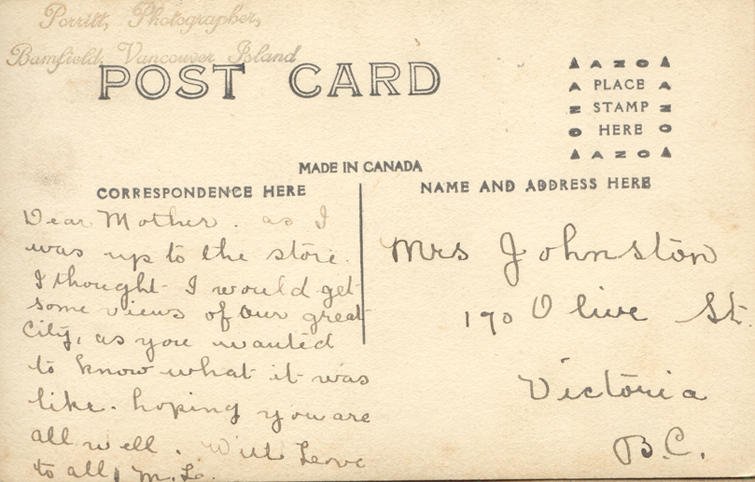 Porritt, Photographer,
Bamfield, Vancouver Island
POST CARD
▲ A Z O ▲
A PLACE A
Z STAMP Z
O HERE O
▲ A Z O ▲
MADE IN CANADA
CORRESPONDENCE HERE
Dear Mother. as I
was up to the store.
I thought I would get
some views of our great
City, as you wanted
to know what it was
like. hoping you are
all well. With Love
to all, M. L.
NAME AND ADDRESS HERE
Mrs Johnston
170 Olive St.
Victoria
B.C.